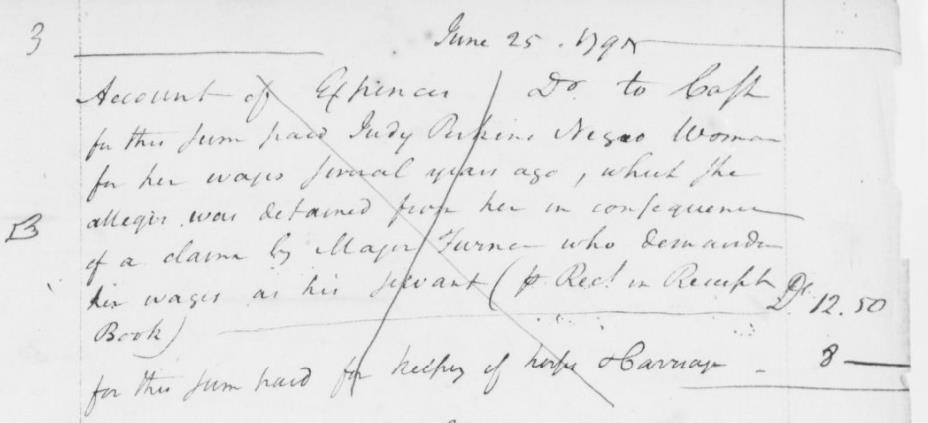 3
June 25. 179
Account of Expences Dr. to Cash
for this sum paid Judy Perkins Negro Woman
for her wages several years ago, which she
alleges was detained from her in consequence
of a claim by Major Turner who demanded
B
her wages as his servant ( p Rect. in Receipt
Book) Ds. 12.50
for this sum paid for keeping of horses & Carriage - 8 —